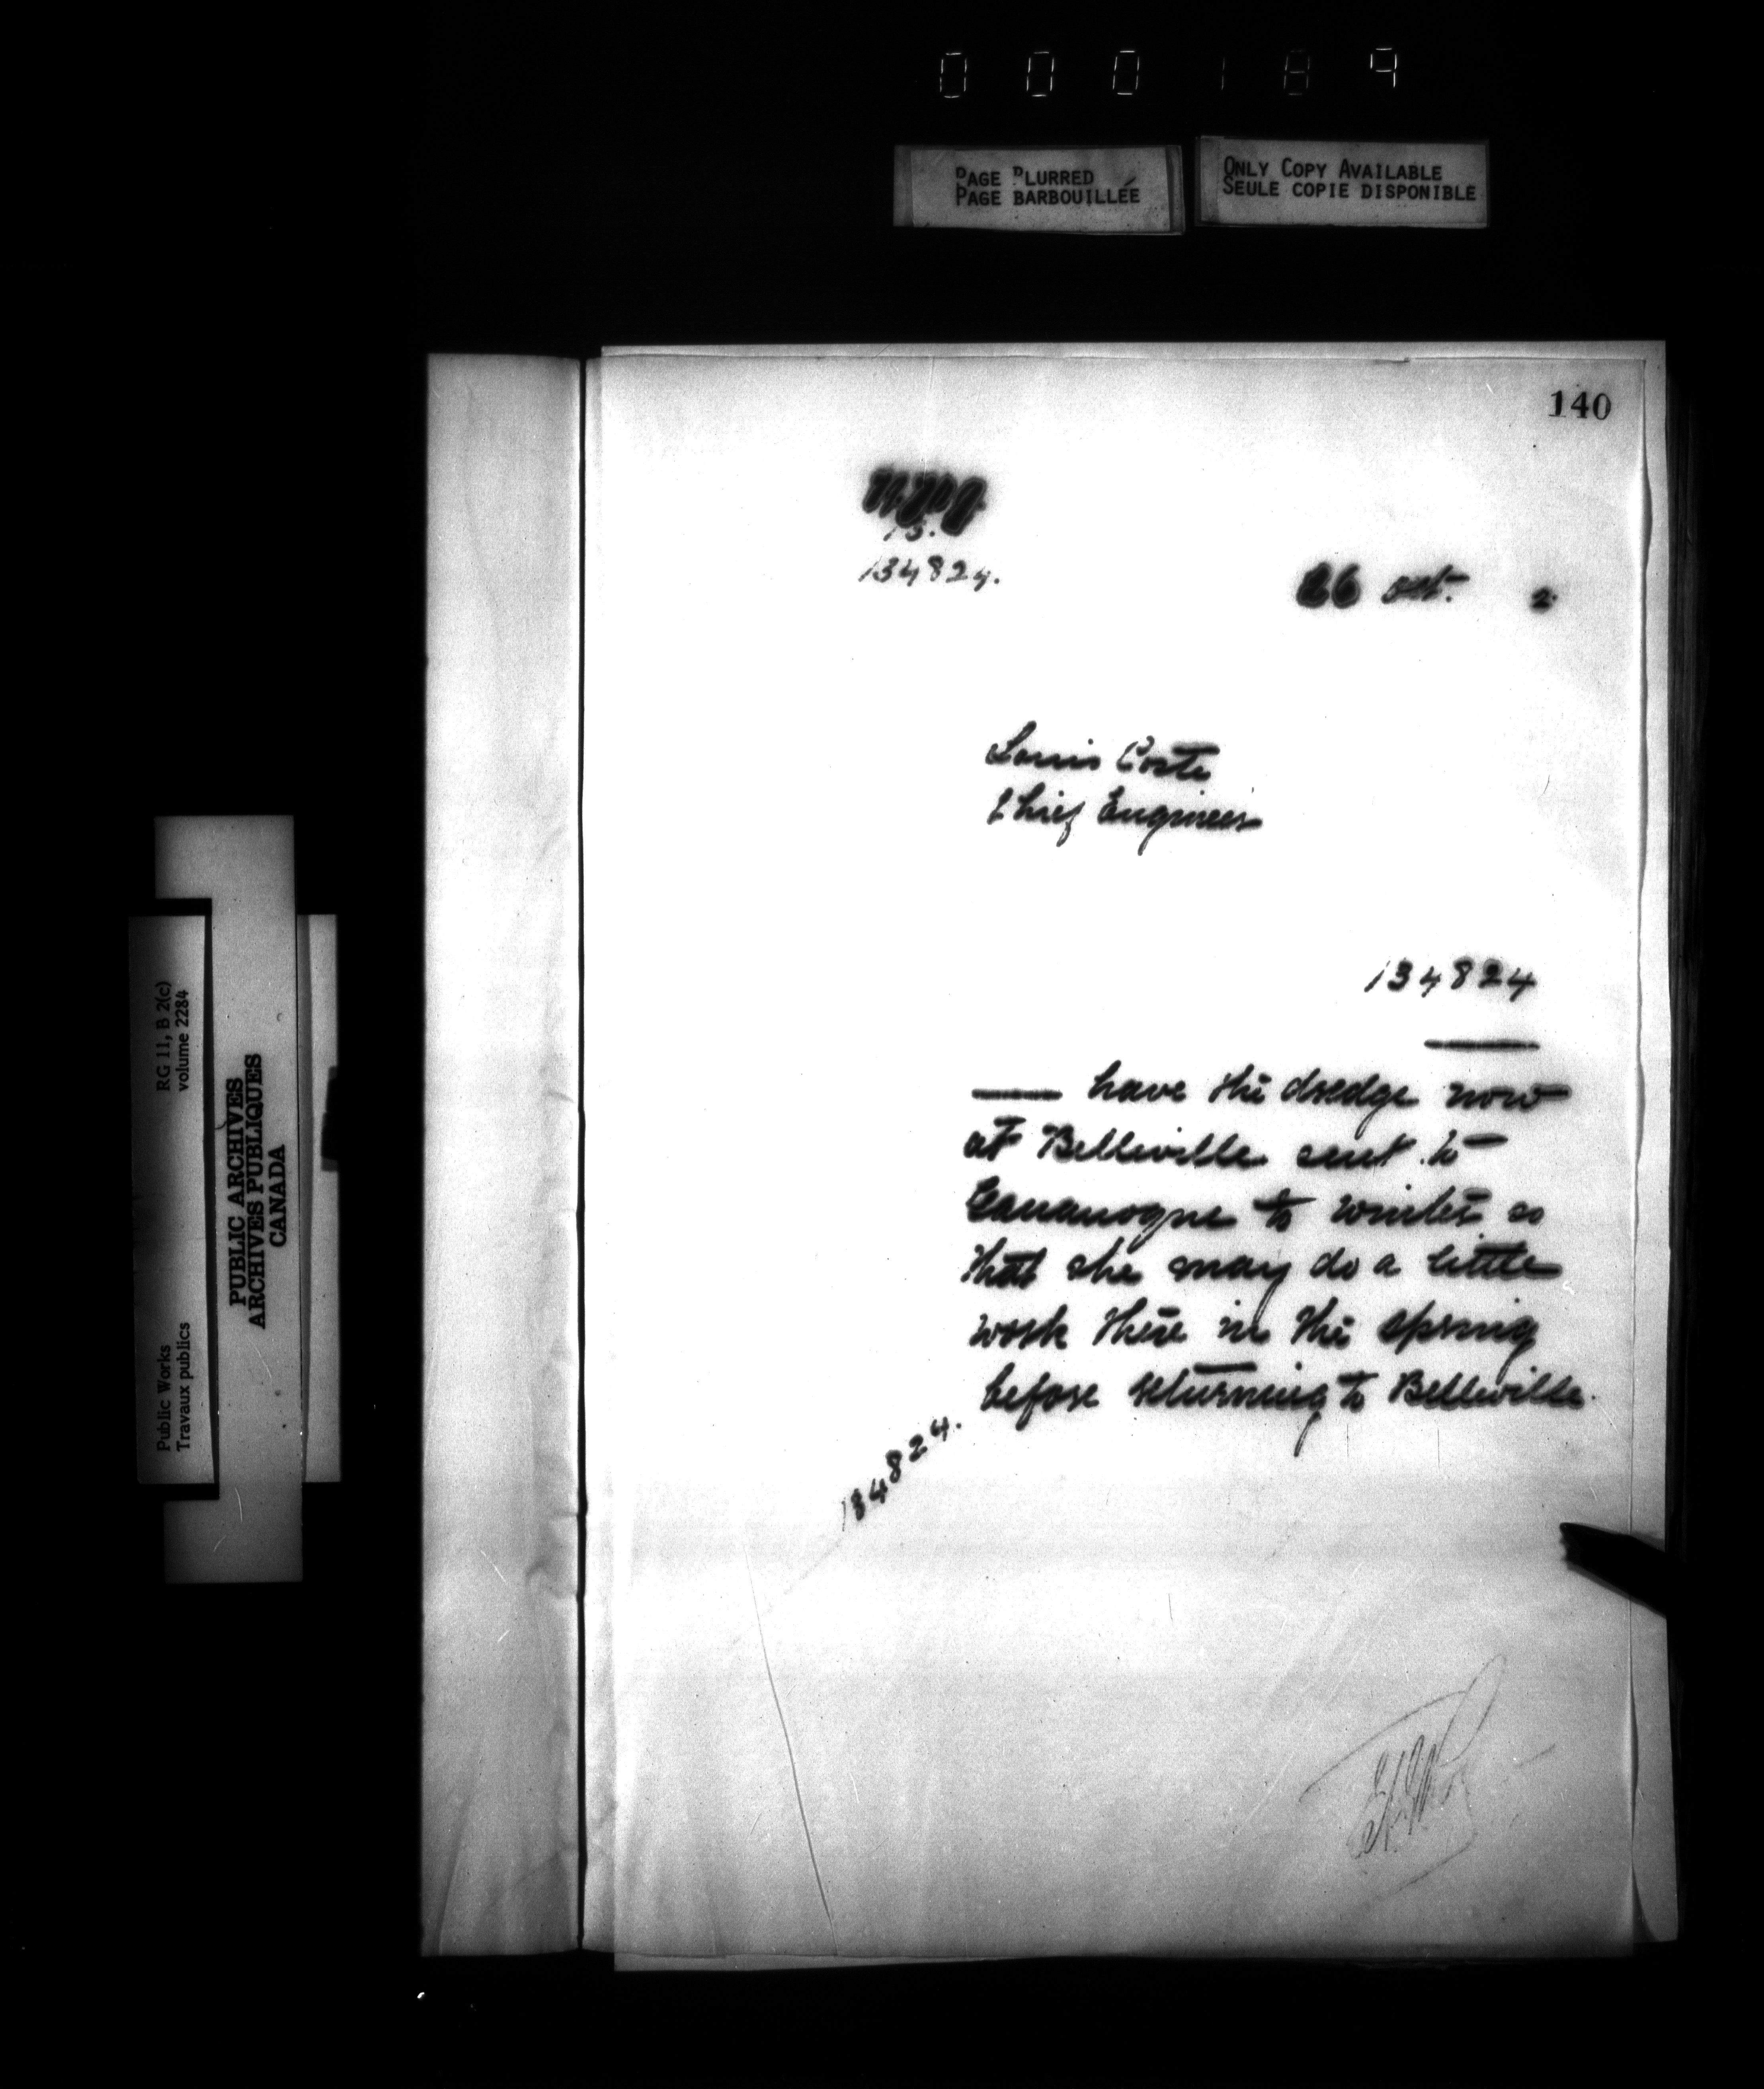 000189
PAGE BLURRED
PAGE BARBOUILLÉE
ONLY COPY AVAILABLE
SEULE COPIE DISPONIBLE
140
13.
134824.
26 Oct. 2
Louis Coste
Chief Engineer
134824
have the dredge now
at Belleville sent to
Gananoque to winter so
that she may do a little
work there in the spring
before returning to Belleville.
134824.
Public Works
Travaux publics
RG 11, B 2(c)
volume 2284
PUBLIC ARCHIVES
ARCHIVES PUBLIQUES
CANADA